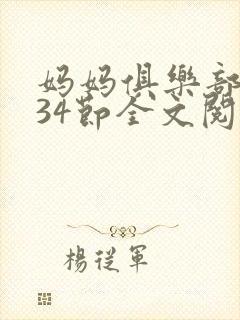 妈妈俱樂部
34節全文閱
楊從軍